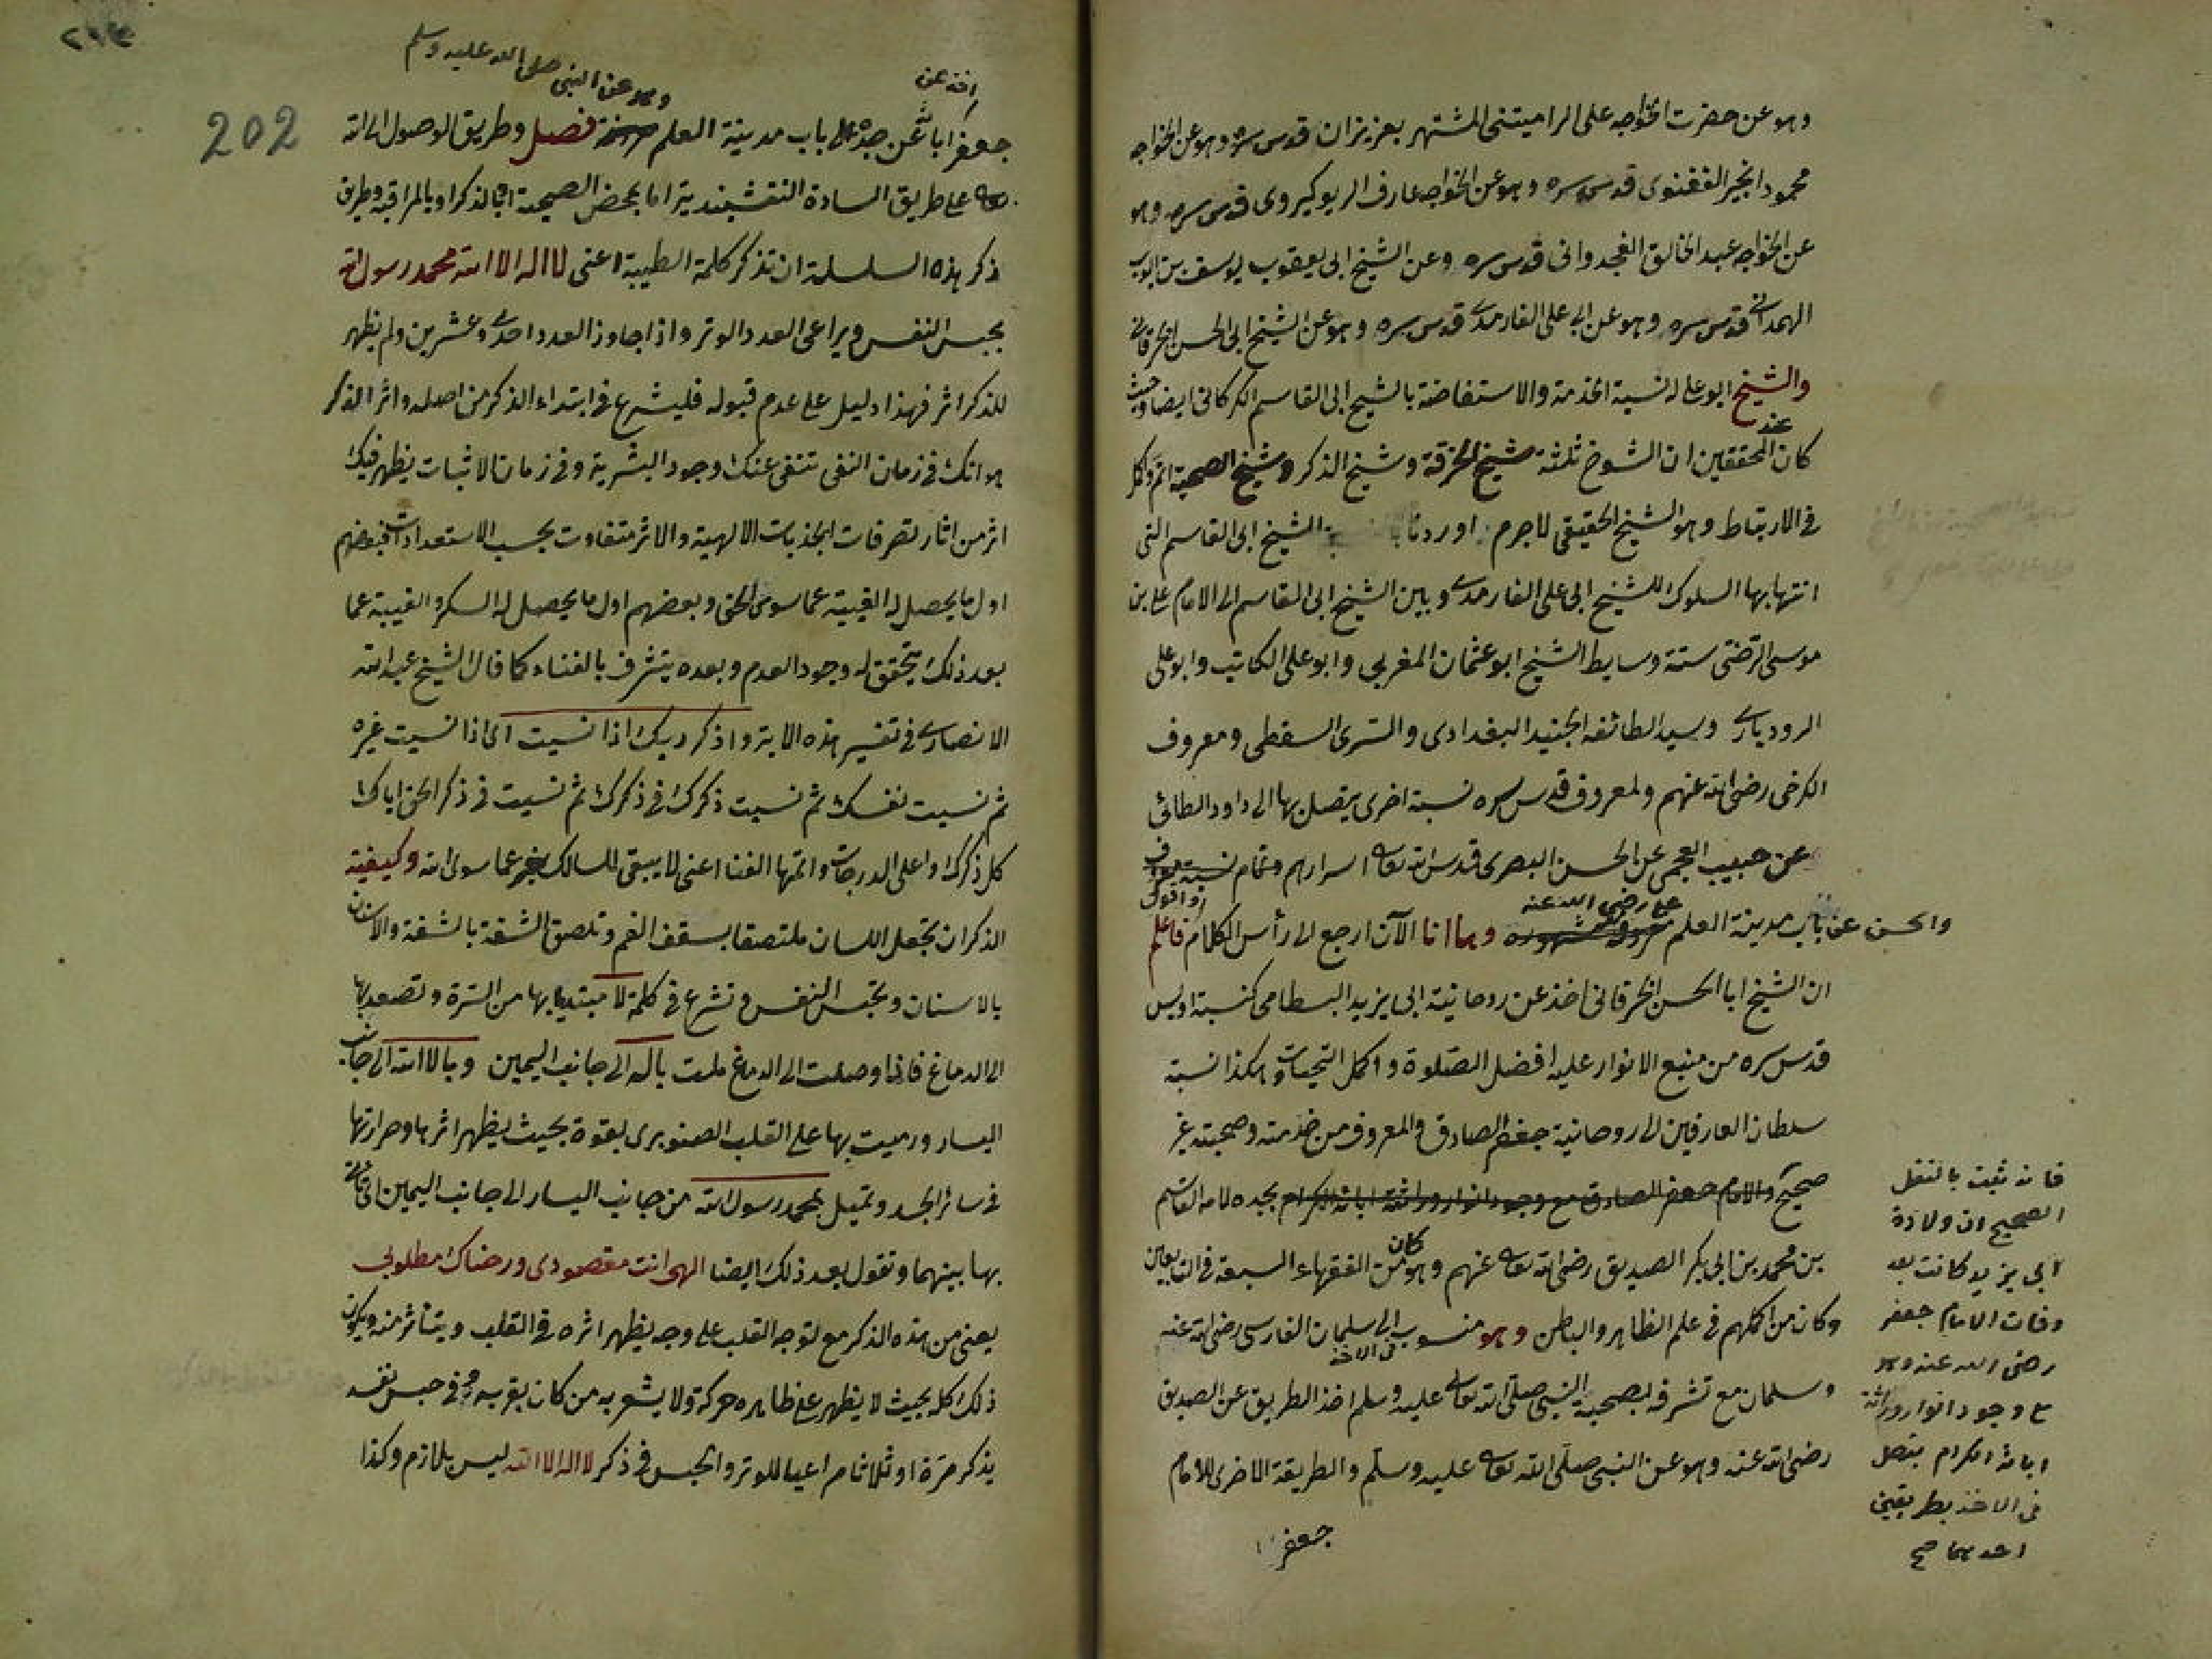 وهو عن حضرت الخواجه على الراميتنى المشتهر بعزيزان قدس سره وهو عن الخواجه
محمود انجير الفغنوى قدس سره وهو عن الخواجه عارف الريوكيروى قدس سره وهو
عن الخواجه عبد الخالق الغجدوانى قدس سره وعن الشيخ ابى يعقوب يوسف بن ايوب
الهمدانى قدس سره وهو عن ابى على الفارمدى قدس سره وهو عن الشيخ ابى الحسن الخرقانى
والشيخ ابو على له نسبة الخدمة والاستفاضة بالشيخ ابى القاسم الكركانى ايضا وحيث
كان عند المحققين ان الشيوخ ثلثة شيخ الخرقة وشيخ الذكر وشيخ الصحبة اتم واكمل
فى الارتباط وهو الشيخ الحقيقى لاجرم اوردنا الشيخ ابى القاسم التى
انتها بها السلوك للشيخ ابى على الفارمدى وبين الشيخ ابى القاسم الى الامام على بن
موسى الرضى ستة وسايط الشيخ ابو عثمان المغربى وابو على الكاتب وابو على
الرودبارى وسيد الطائفه الجنيد البغدادى والسرى السقطى ومعروف
الكرخى رضى الله عنهم ولمعروف قدس سره نسبة اخرى يتصل بها الى داود الطائى
عن حبيب العجمى عن الحسن البصرى قدس الله تعالى اسرارهم وتمام نسبة معروف
والحسن عن باب مدينة العلم على رضى الله عنه معروفة مشهورة وها انا الآن ارجع الى رأس الكلام واقول فاعلم
ان الشيخ ابا الحسن الخرقانى اخذ عن روحانية ابى يزيد البسطامى كنسبة اويس
قدس سره من منبع الانوار عليه افضل الصلوة واكمل التحيات وهكذا نسبة
سلطان العارفين الى روحانية جعفر الصادق والمعروف من خدمته وصحبته غير
صحيح والامام جعفر الصادق مع وجود انوار وراثة ابائه الكرام بجده لامه القاسم
بن محمد بن ابى بكر الصديق رضى الله تعالى عنهم وهو كان من الفقهاء السبعة فى التابعين
وكان من اكملهم فى علم الظاهر والباطن وهو منسوب فى الاخذ الى سلمان الفارسى رضى الله عنه
وسلمان مع تشرفه بصحبة النبى صلى الله تعالى عليه وسلم اخذ الطريق عن الصديق
رضى الله عنه وهو عن النبى صلى الله تعالى عليه وسلم والطريقة الاخرى للامام
جعفر
فانه ثبت بالنقل
الصحيح ان ولادة
ابى يزيد كانت بعد
وفات الامام جعفر
رضى الله عنه وهو
مع وجود انوار وراثة
ابائه الكرام يتصل
فى الاخذ بطريقين
احدهما صح
202
اخذه عن
وهو عن النبى صلى الله عليه وسلم
جعفر اباً عن جد الى باب مدينة العلم فصل وطريق الوصول الى الله
تعالى على طريق السادة النقشبندية اما بمحض الصحبة او بالذكر او بالمراقبه وطريق
ذكر هذه السلسلة ان تذكر كلمة الطيبة اعنى لا اله الا الله محمد رسول الله
بحبس النفس ويراعى العدد الوتر واذا جاوز العدد احدى وعشرين ولم يظهر
للذكر اثر فهذا دليل على عدم قبوله فليشرع فى ابتداء الذكر من اصله واثر الذكر
هو انك فى زمان النفى تنتفى عنك وجود البشرية وفى زمان الاثبات يظهر فيك
اثر من اثار تصرفات الجذبات الالهية والاثر متفاوت بحسب الاستعدادات فبعضهم
اول ما يحصل له الغيبة عما سوى الحق وبعضهم اول ما يحصل له السكر والغيبة عما
بعد ذلك يتحقق له وجود العدم وبعده يتشرف بالفناء كما قال الشيخ عبد الله
الانصارى فى تفسير هذه الاية واذكر ربك اذا نسيت اى اذا نسيت غيره
ثم نسيت نفسك ثم نسيت ذكرك فى ذكرك ثم نسيت فى ذكر الحق اياك
كل ذكرك واعلى الدرجات واتمها الفنا اعنى لا يبقى للسالك خبر عما سوى الله وكيفية
الذكر ان تجعل اللسان ملتصقا بسقف الفم وتلصق الشفة بالشفة والاسنان
بالاسنان وتحبس النفس وتشرع فى كلمة لا مبتديا بها من السرة وتصعد بها
الى الدماغ فاذا وصلت الى الدماغ ملت باله الى جانب اليمين وبالا الله الى جانب
اليسار ورميت بها على القلب الصنوبرى بقوة بحيث يظهر اثرها وحرارتها
فى سائر الجسد وتميل بمحمد رسول الله من جانب اليسار الى جانب اليمين
بها بينهما وتقول بعد ذلك ايضا الهى انت مقصودى ورضاك مطلوبى
يعنى من هذه الذكر مع توجه القلب على وجه يظهر اثره فى القلب ويتأثر منه ويكون
ذلك كله بحيث لا يظهر على ظاهره حركة ولا يشعر به من كان بقربه وفى حبس نفسه
يذكر مرة او ثلاثا مراعيا للوتر والحبس فى ذكر لا اله الا الله ليس بلازم وكذا